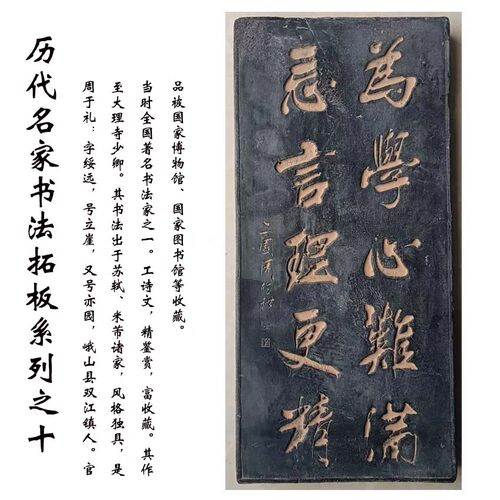 历代名家书法拓板系列之十
周于礼：字绥远，号立崖，又号亦园，峨山县双江镇人。官
至大理寺少卿。其书法出于苏轼、米芾诸家，风格独具，是
当时全国著名书法家之一。工诗文，精鉴赏，富收藏。其作
品被国家博物馆、国家图书馆等收藏。
為學心難滿
忘言理更精